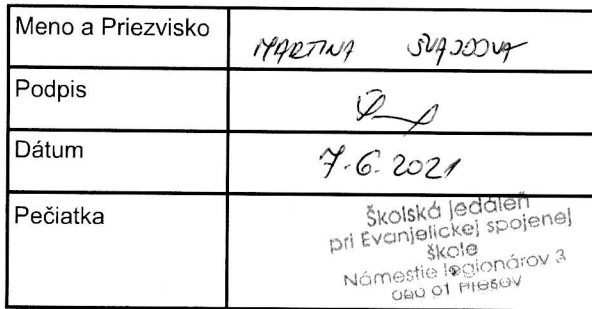 Meno a Priezvisko MARTINA
Podpis
Dátum 7.6.2021
Pečiatka
Školská jedáleň
pri Evanjelickej spojenej
škole
Námestie legionárov 3
080 01 Prešov